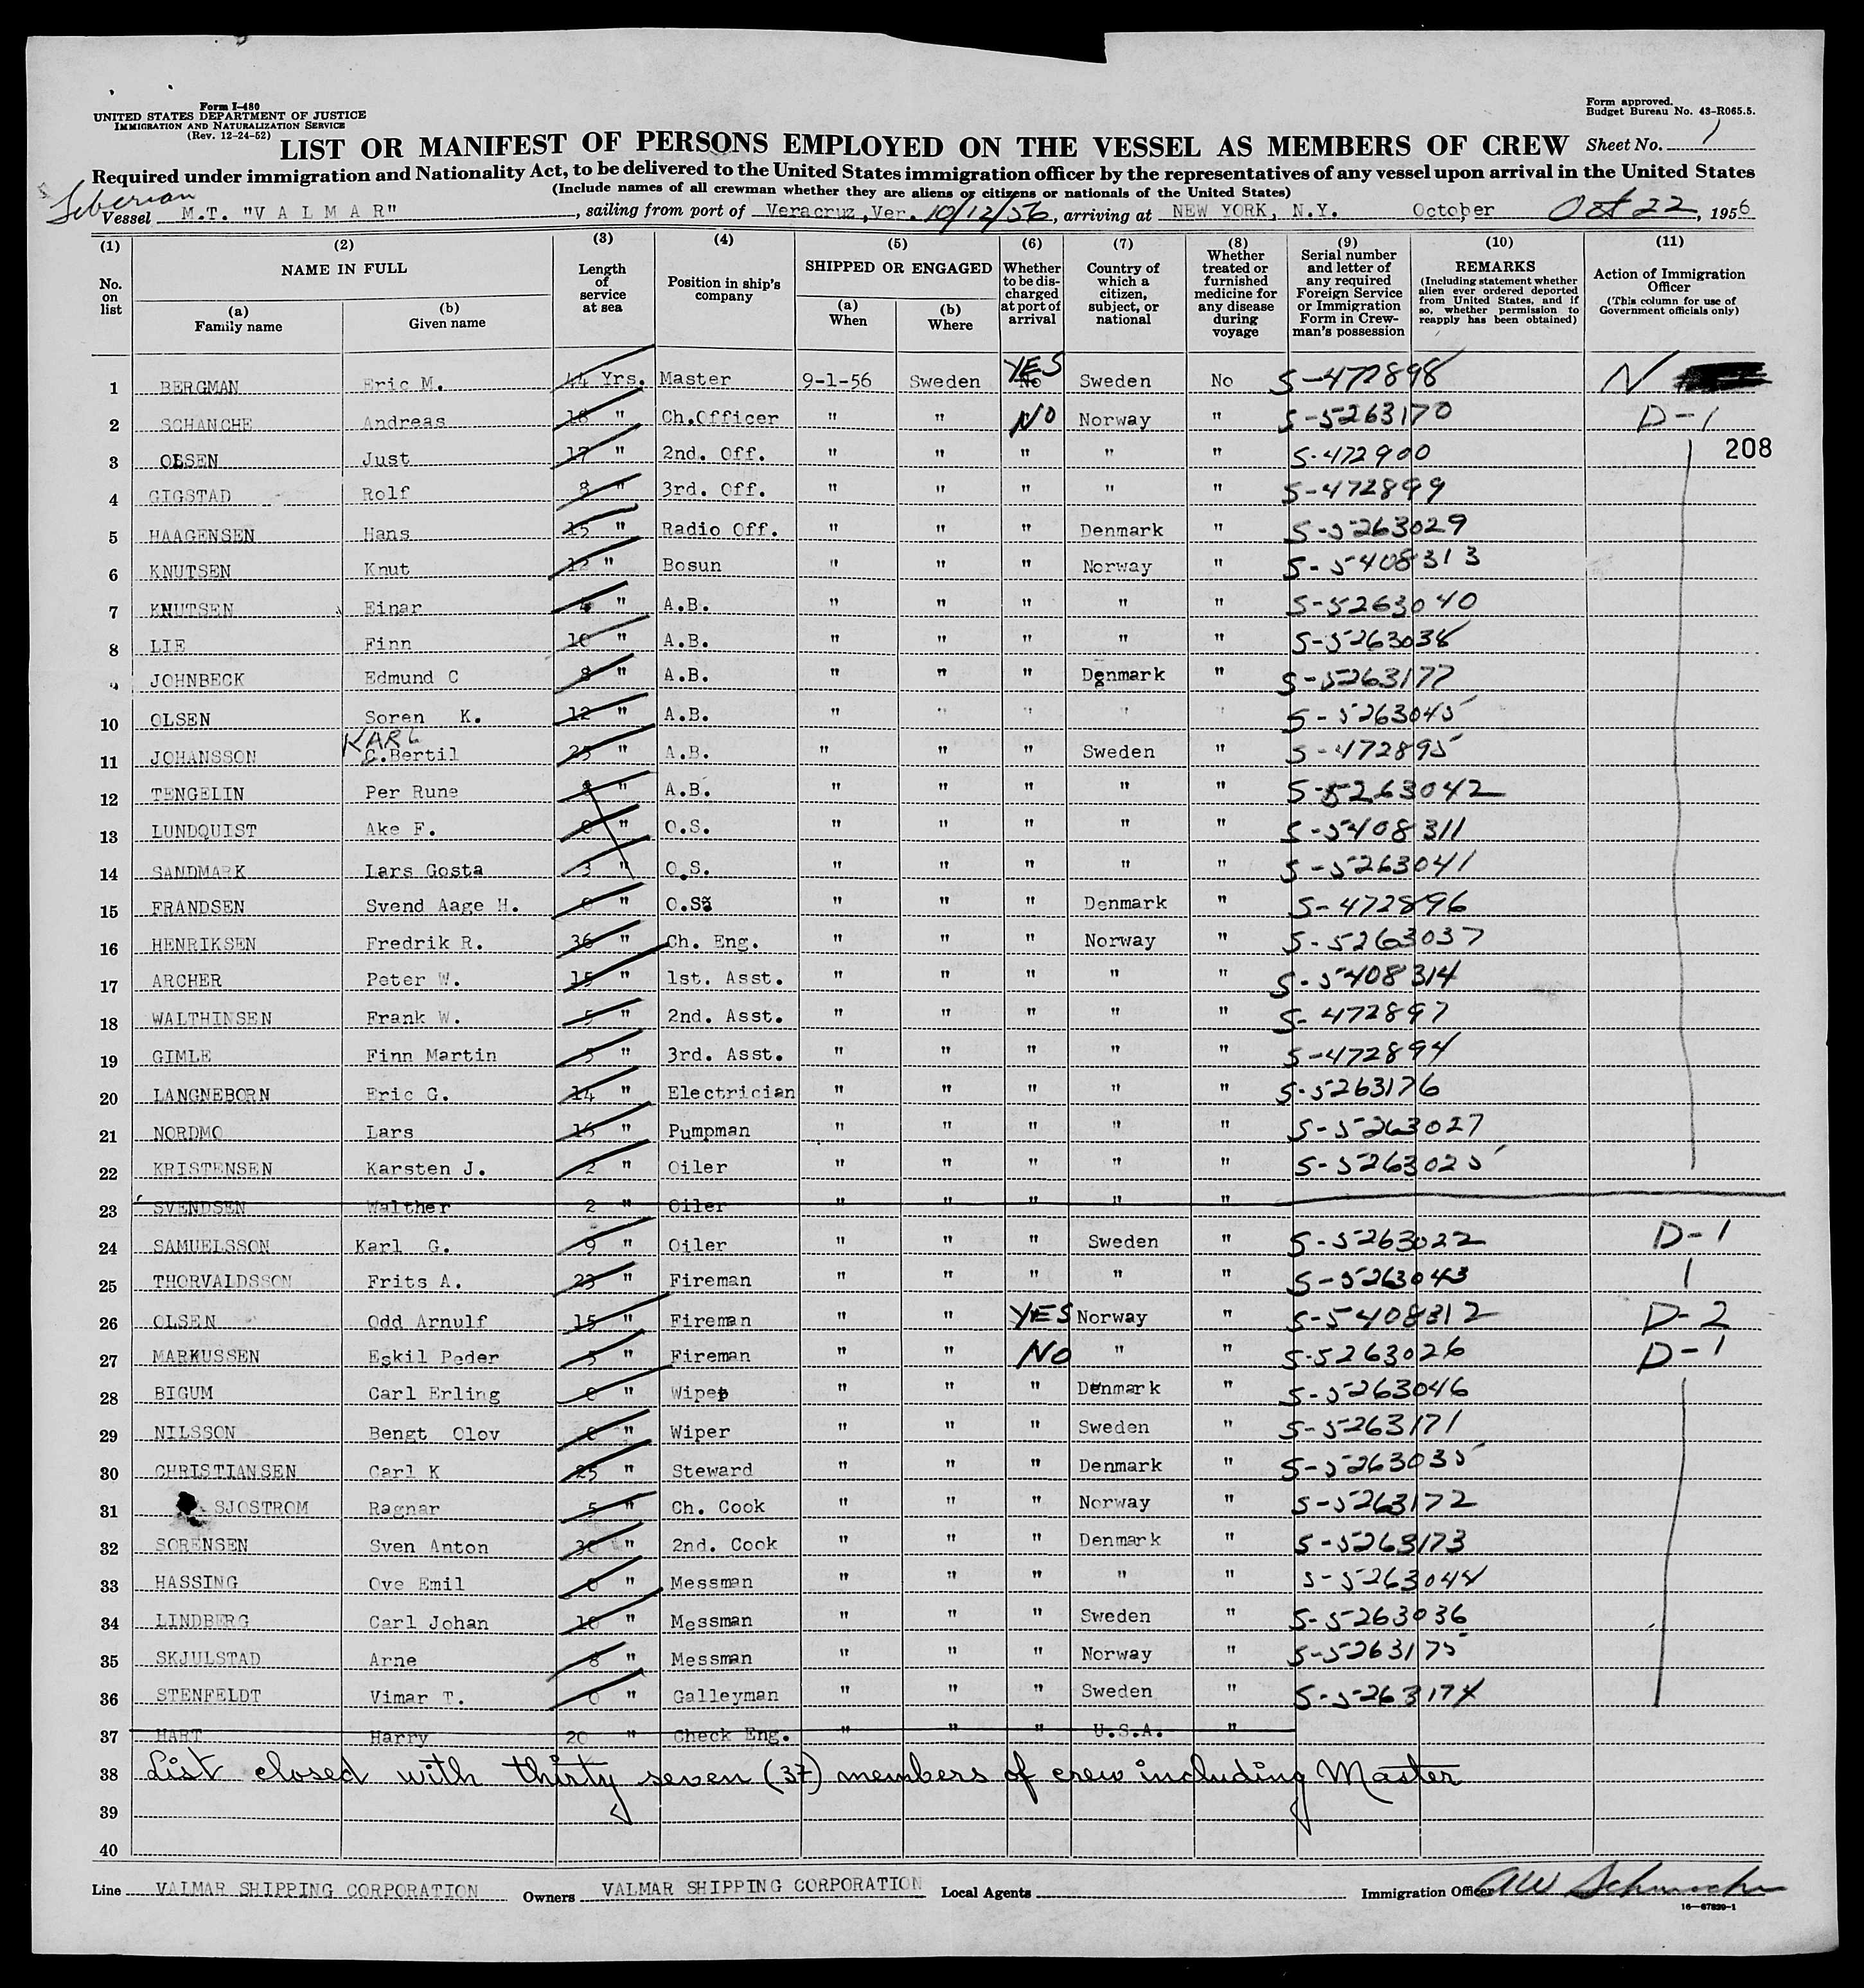 Form I-480
UNITED STATES DEPARTMENT OF JUSTICE
IMMIGRATION AND NATURALIZATION SERVICE
(Rev. 12-24-52)
Form approved.
Budget Bureau No. 43-R065.5.
LIST OR MANIFEST OF PERSONS EMPLOYED ON THE VESSEL AS MEMBERS OF CREW Sheet No. 1
Required under immigration and Nationality Act, to be delivered to the United States immigration officer by the representatives of any vessel upon arrival in the United States
(Include names of all crewman whether they are aliens or citizens or nationals of the United States)
Liberian
Vessel M.T. "V A L M A R", sailing from port of Veracruz, Ver. 10/12/56, arriving at NEW YORK, N.Y. October Oct 22, 1956
(1) (2) (3) (4) (5) (6) (7) (8) (9) (10) (11)
No. on list
NAME IN FULL
(a) Family name
(b) Given name
Length of service at sea
Position in ship's company
SHIPPED OR ENGAGED
(a) When
(b) Where
Whether to be discharged at port of arrival
Country of which a citizen, subject, or national
Whether treated or furnished medicine for any disease during voyage
Serial number and letter of any required Foreign Service or Immigration Form in Crewman's possession
REMARKS
(Including statement whether alien ever ordered deported from United States, and if so, whether permission to reapply has been obtained)
Action of Immigration Officer
(This column for use of Government officials only)
1 BERGMAN Eric M. 44 Yrs. Master 9-1-56 Sweden No YES Sweden No S-472898 N
2 SCHANCHE Andreas 18 " Ch.Officer " " NO Norway " S-5263170 D-1
208
3 OLSEN Just 17 " 2nd. Off. " " " " " S-472900
4 GIGSTAD Rolf 8 " 3rd. Off. " " " " " S-472899
5 HAAGENSEN Hans 15 " Radio Off. " " " Denmark " S-5263029
6 KNUTSEN Knut 12 " Bosun " " " Norway " S-5408313
7 KNUTSEN Einar " A.B. " " " " " S-5263040
8 LIE Finn 10 " A.B. " " " " " S-5263038
9 JOHNBECK Edmund C 8 " A.B. " " " Denmark " S-5263177
10 OLSEN Soren K. 12 " A.B. " " " " " S-5263045
11 JOHANSSON KARL C.Bertil 25 " A.B. " " " Sweden " S-472895
12 TENGELIN Per Rune 8 " A.B. " " " " " S-5263042
13 LUNDQUIST Ake F. 0 " O.S. " " " " " S-5408311
14 SANDMARK Lars Gosta 3 " O.S. " " " " " S-5263041
15 FRANDSEN Svend Aage H. 0 " O.S. " " " Denmark " S-472896
16 HENRIKSEN Fredrik R. 36 " Ch. Eng. " " " Norway " S-5263037
17 ARCHER Peter W. 15 " 1st. Asst. " " " " " S-5408314
18 WALTHINSEN Frank W. 5 " 2nd. Asst. " " " " " S-472897
19 GIMLE Finn Martin 5 " 3rd. Asst. " " " " " S-472894
20 LANGNEBORN Eric G. 14 " Electrician " " " " " S-5263176
21 NORDMO Lars 16 " Pumpman " " " " " S-5263027
22 KRISTENSEN Karsten J. 2 " Oiler " " " " " S-5263025
23 SVENDSEN Walther 2 " Oiler " " " " "
24 SAMUELSSON Karl G. 9 " Oiler " " " Sweden " S-5263022 D-1
25 THORVALDSSON Frits A. 23 " Fireman " " " " " S-5263043
26 OLSEN Odd Arnulf 15 " Fireman " " YES Norway " S-5408312 D-2
27 MARKUSSEN Eskil Peder 5 " Fireman " " NO " " S-5263026 D-1
28 BIGUM Carl Erling 0 " Wiper " " " Denmark " S-5263046
29 NILSSON Bengt Olov 0 " Wiper " " " Sweden " S-5263171
30 CHRISTIANSEN Carl K 25 " Steward " " " Denmark " S-5263035
31 SJOSTROM Ragnar 5 " Ch. Cook " " " Norway " S-5263172
32 SORENSEN Sven Anton 30 " 2nd. Cook " " " Denmark " S-5263173
33 HASSING Ove Emil 0 " Messman " " " " " S-5263044
34 LINDBERG Carl Johan 10 " Messman " " " Sweden " S-5263036
35 SKJULSTAD Arne 8 " Messman " " " Norway " S-5263175
36 STENFELDT Vimar T. 0 " Galleyman " " " Sweden " S-5263174
37 HART Harry 20 " Check Eng. " " " U.S.A. "
38 List closed with thirty seven (37) members of crew including Master
39
40
Line VALMAR SHIPPING CORPORATION Owners VALMAR SHIPPING CORPORATION Local Agents Immigration Officer AW
16-67839-1